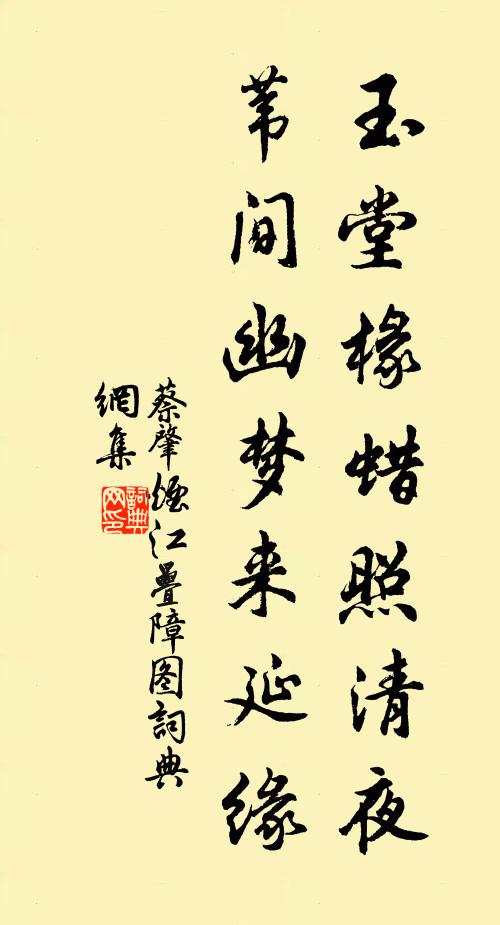 玉堂椽蜡照清夜
苇间幽梦来延缘
蔡肇烟江疊障图詞典
網集
詞典网印